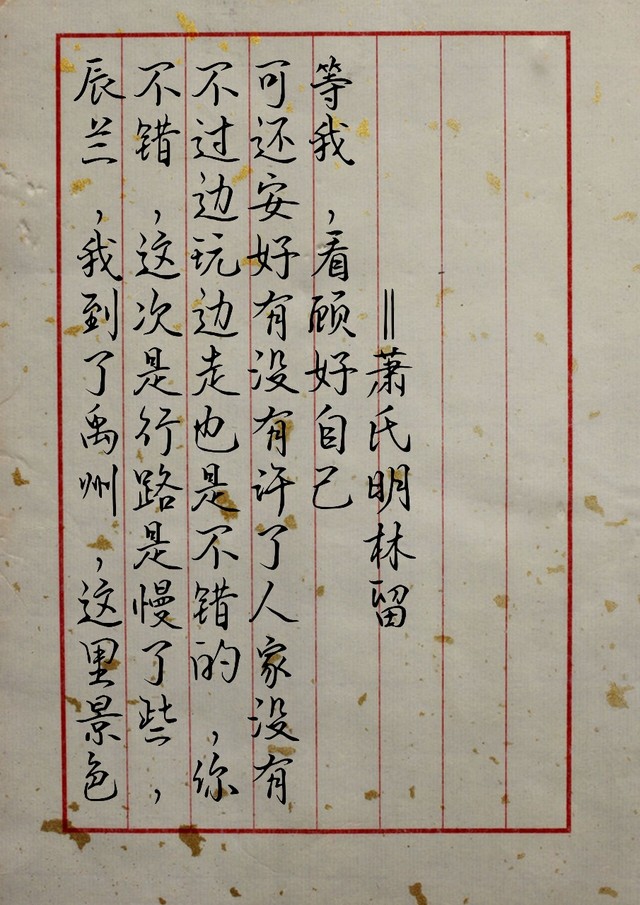 辰兰，我到了禹州，这里景色
不错，这次是行路是慢了些，
不过边玩边走也是不错的，你
可还安好有没有许了人家没有
等我，看顾好自己
||萧氏明林留